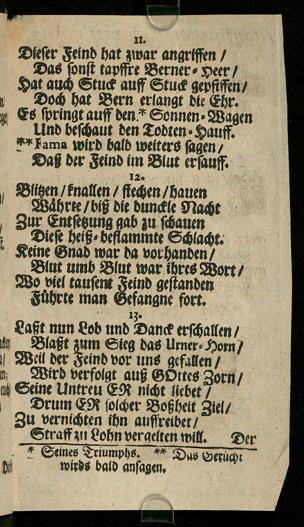 11.
Dieser Feind hat zwar angriffen /
Das sonst tapffre Berner-Heer /
Hat auch Stuck auff Stuck gepfiffen /
Doch hat Bern erlangt die Ehr.
Es springt auff den * Sonnen-Wagen
Und beschaut den Todten-Hauff.
** Fama wird bald weiters sagen /
Daß der Feind im Blut ersauff.
12.
Blitzen / knallen / stechen / hauen
Währte / biß die dunckle Nacht
Zur Entsetzung gab zu schauen
Diese heiß-beflammte Schlacht.
Keine Gnad war da vorhanden /
Blut umb Blut war ihres Wort /
Wo viel tausent Feind gestanden
Führte man Gefangne fort.
13.
Laßt nun Lob und Danck erschallen /
Blaßt zum Sieg das Urner-Horn /
Weil der Feind vor uns gefallen /
Wird verfolgt auß GOttes Zorn /
Seine Untreu ER nicht liebet /
Drum ER solcher Boßheit Ziel /
Zu vernichten ihn auffreibet /
Straff zu Lohn vergelten will. Der
* Seines Triumphs. ** Das Gerücht
wirds bald ansagen.